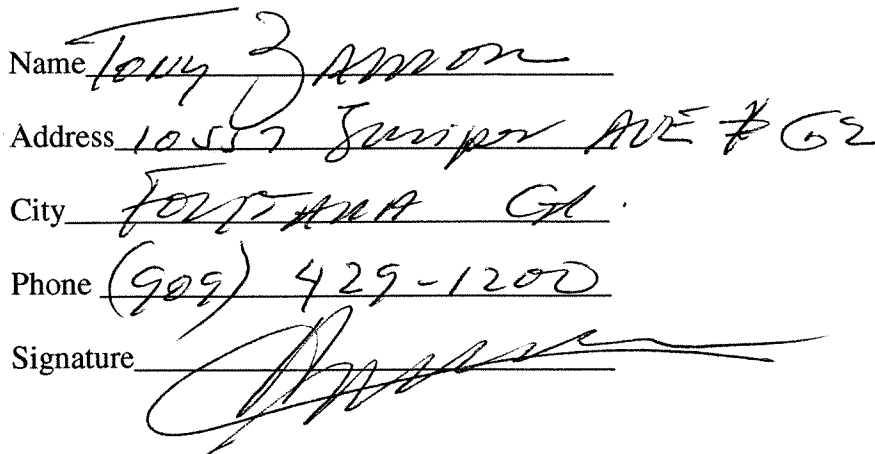 Name Tony Zamora
Address 10557 Juniper AVE # G2
City FONTANA CA.
Phone (909) 429-1200
Signature